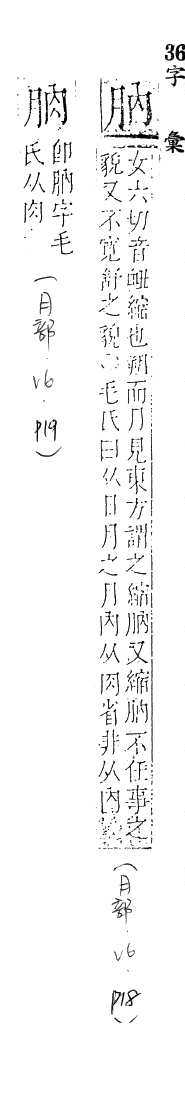 36
字彙
肭
女六切音衄縮也朔而月見東方謂之縮肭又縮肭不任事之
貌又不寬舒之貌○毛氏曰从日月之月內从肉省非从內
(月部.v6.p18)
朒
卽肭字毛
氏从肉
(月部.v6.p19)